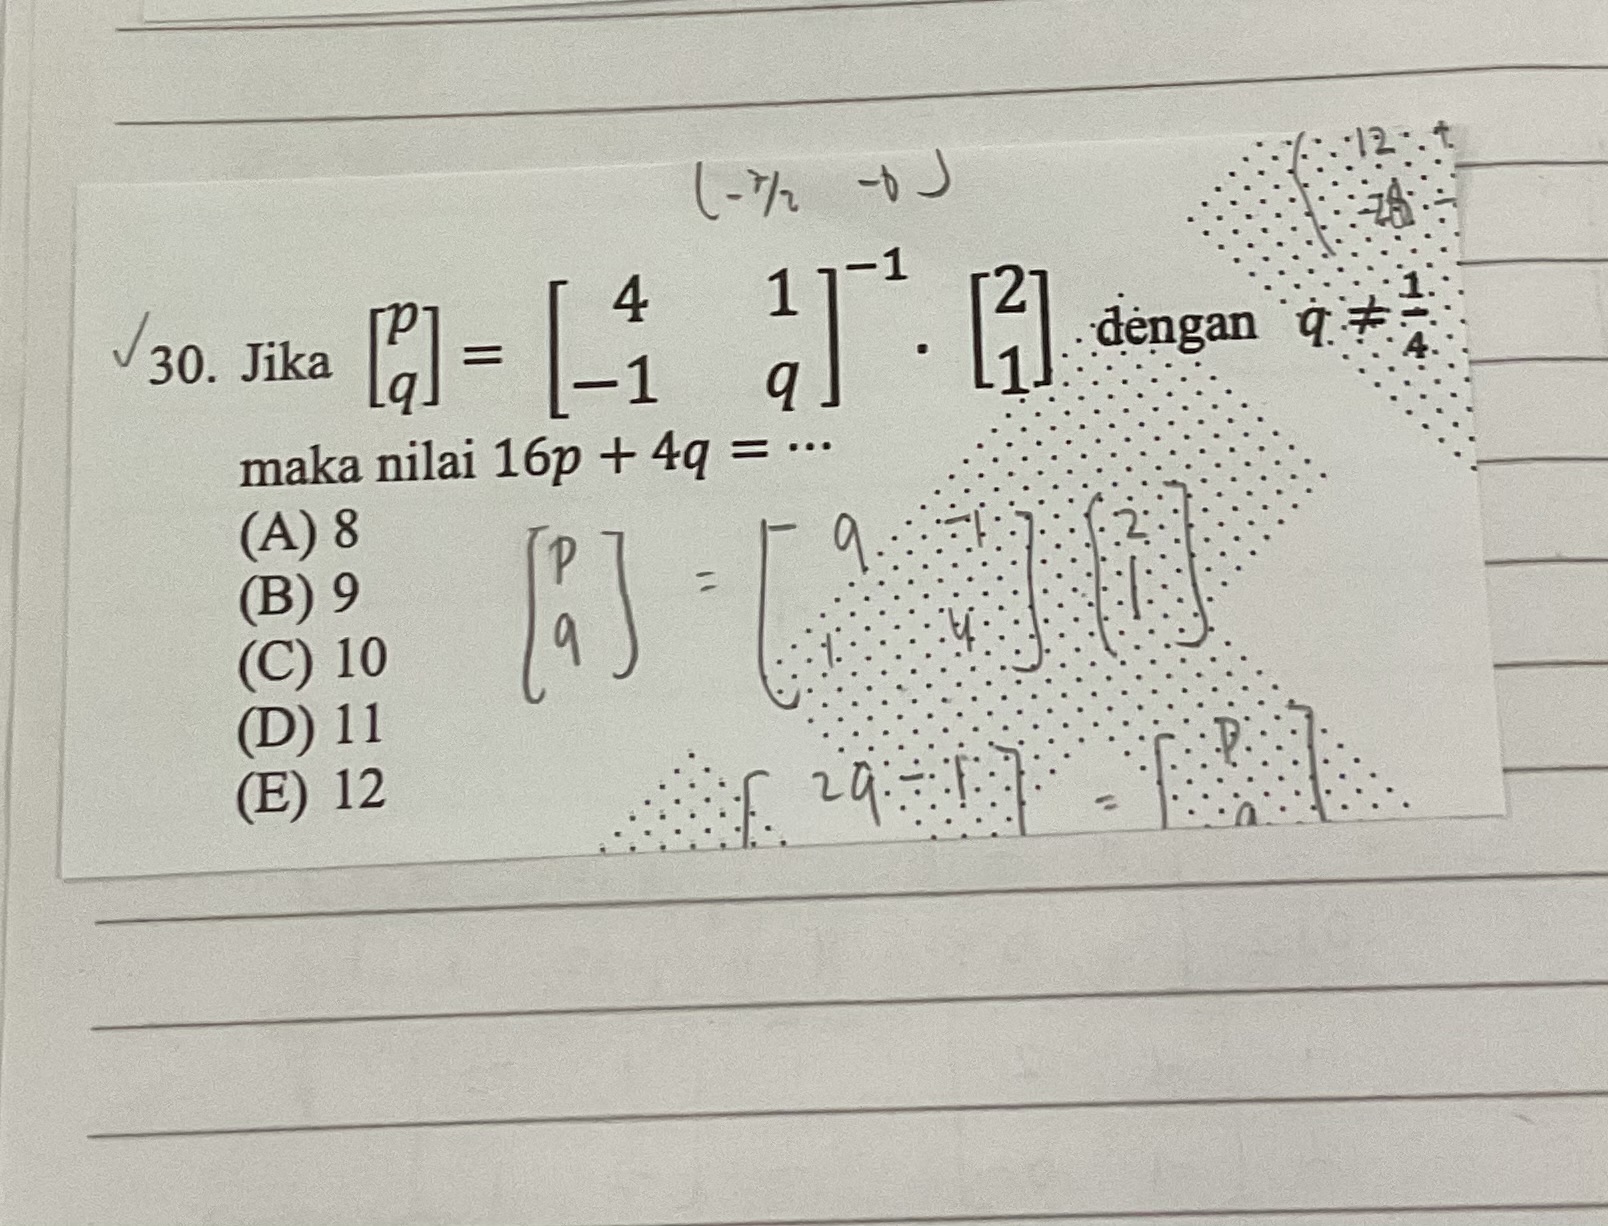 (-7/2 -6)
12 +
✓ 30. Jika [p q] = [4 1 -1 q]⁻¹ · [2 1] dengan q ≠ 1/4
maka nilai 16p + 4q = ...
(A) 8
(B) 9
(C) 10
(D) 11
(E) 12
[p q] = [q -1 1 4] [2 1]
[2q - 1] = [p